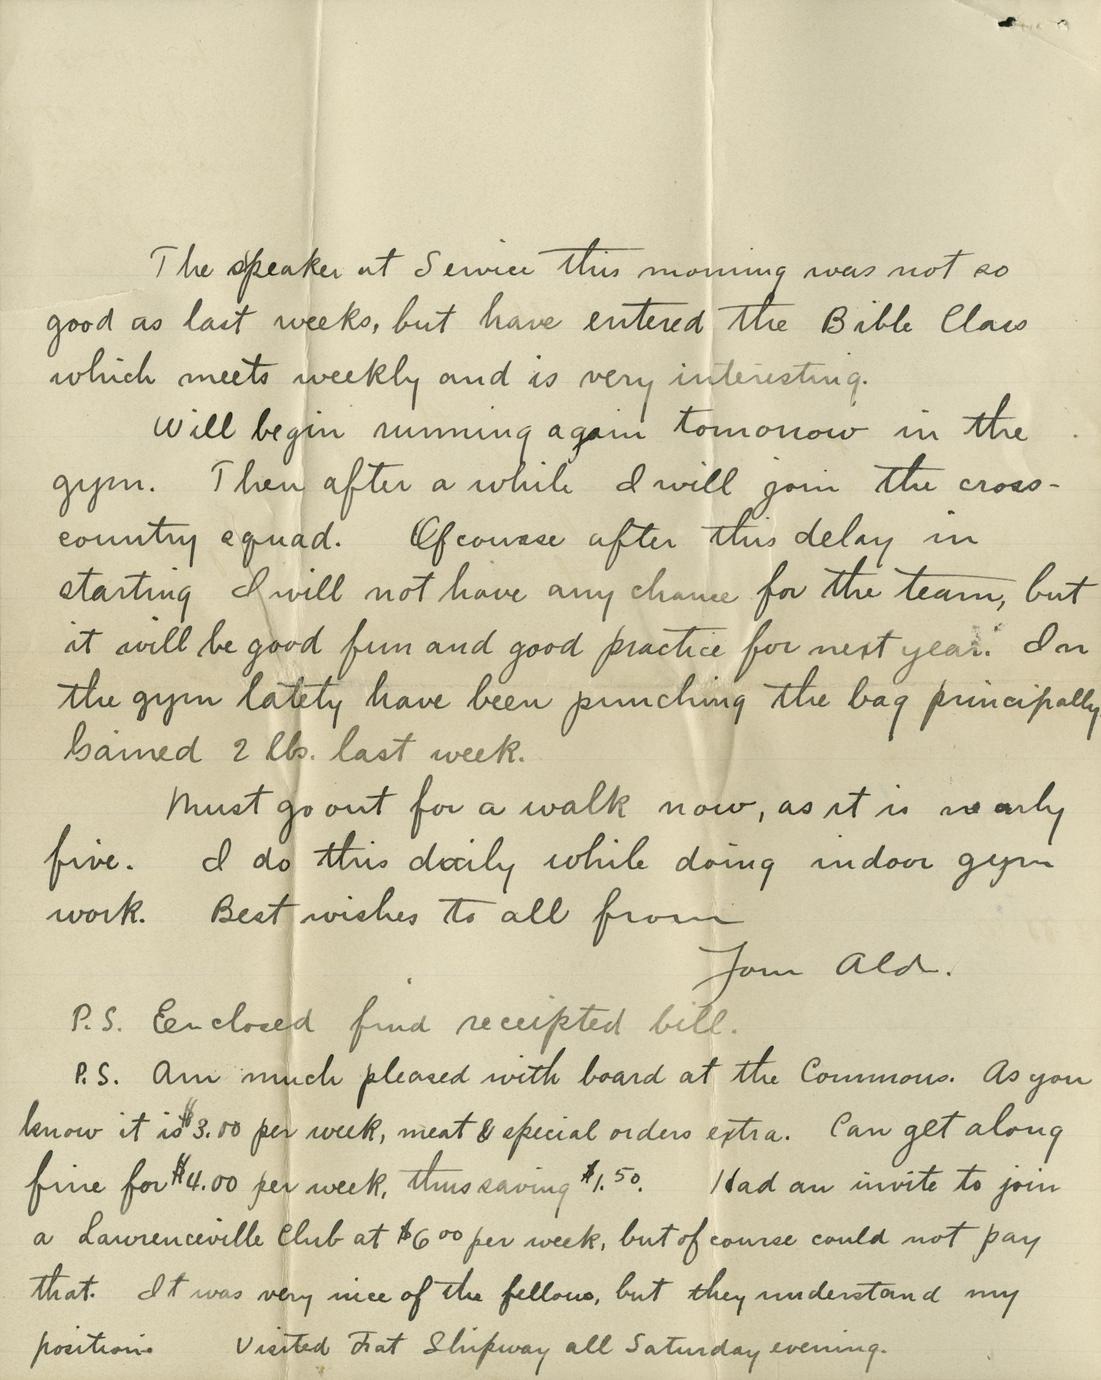 The speaker at Service this morning was not so
good as last weeks, but have entered the Bible Class
which meets weekly and is very interesting.
Will begin running again tomorrow in the
gym. Then after a while I will join the cross-
country squad. Of course after this delay in
starting I will not have any chance for the team, but
it will be good fun and good practice for next year. In
the gym lately have been punching the bag principally.
Gained 2 lbs. last week.
Must go out for a walk now, as it is nearly
five. I do this daily while doing indoor gym
work. Best wishes to all from
Tom Ald.
P.S. Enclosed find receipted bill.
P.S. Am much pleased with board at the Commons. As you
know it is $3.00 per week, meat & special orders extra. Can get along
fine for $4.00 per week, thus saving $1.50. Had an invite to join
a Lawrenceville Club at $6 00 per week, but of course could not pay
that. It was very nice of the fellows, but they understand my
position. Visited Fat Shipway all Saturday evening.